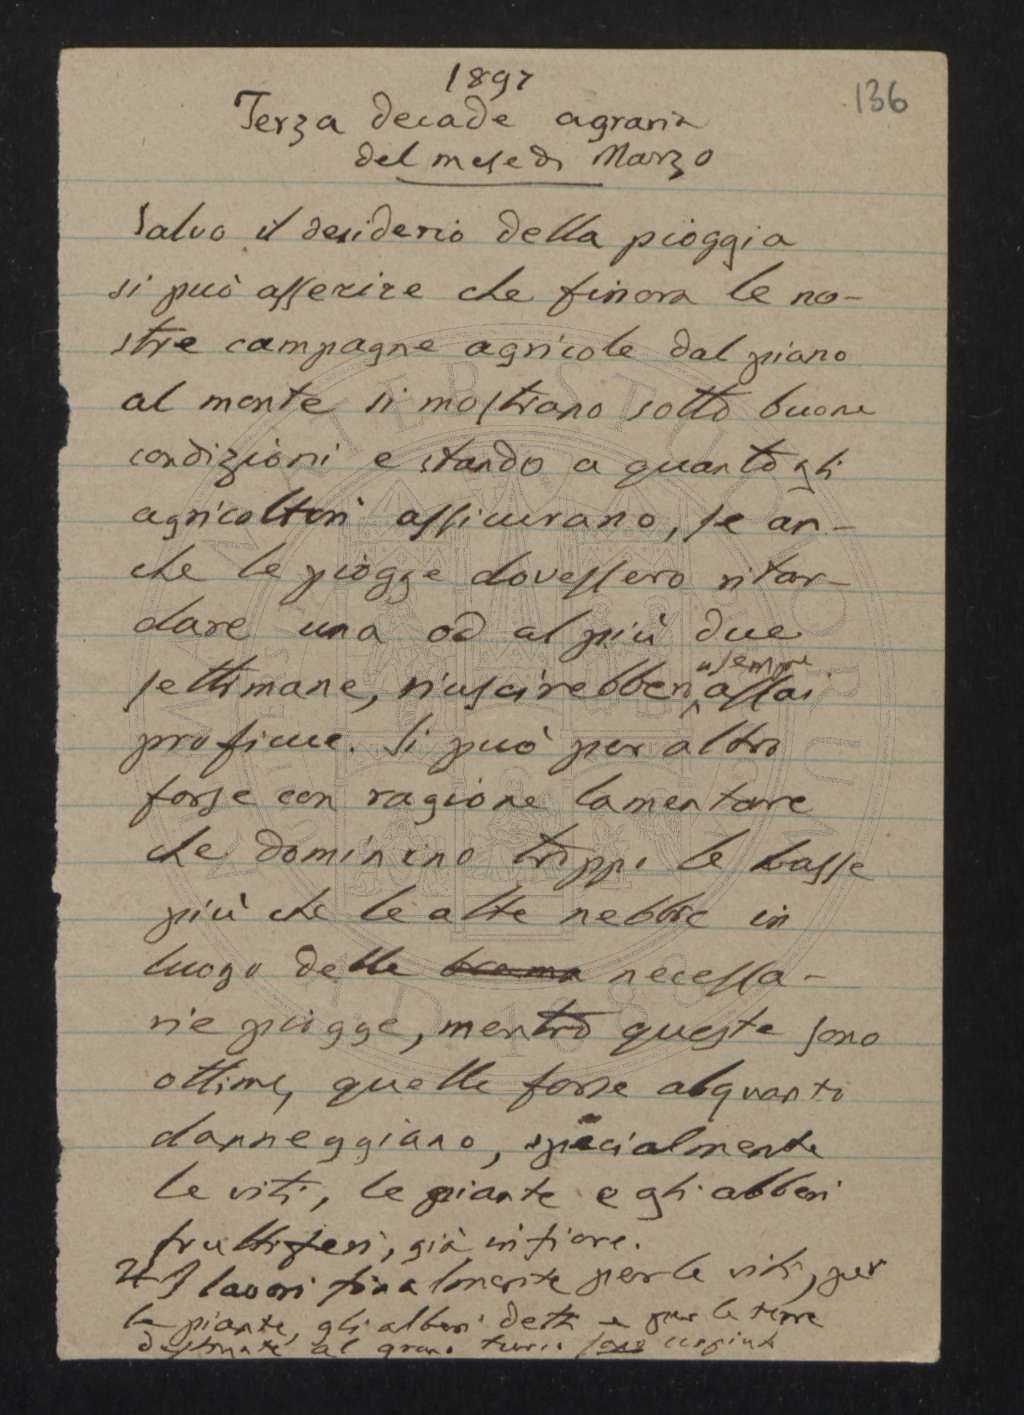 1897
136
Terza decade agraria
del mese di Marzo
Salvo il desiderio della pioggia
si può asserire che finora le no-
stre campagne agricole dal piano
al monte si mostrano sotto buone
condizioni e stando a quanto gli
agricoltori assicurano, se an-
che le piogge dovessero ritar-
dare una od al più due
sempre
settimane, riuscirebbero assai
proficue. Si può per altro
forse con ragione lamentare
che dominino troppo le basse
più che le alte nebbie in
luogo delle necessa-
rie piogge, mentre queste sono
ottime, quelle forse alquanto
danneggiano, specialmente
le viti, le piante e gli alberi
fruttiferi, già in fiore.
I lavori finalmente per le viti, per
le piante, gli alberi detti e per le terre
destinate al grano turco sono